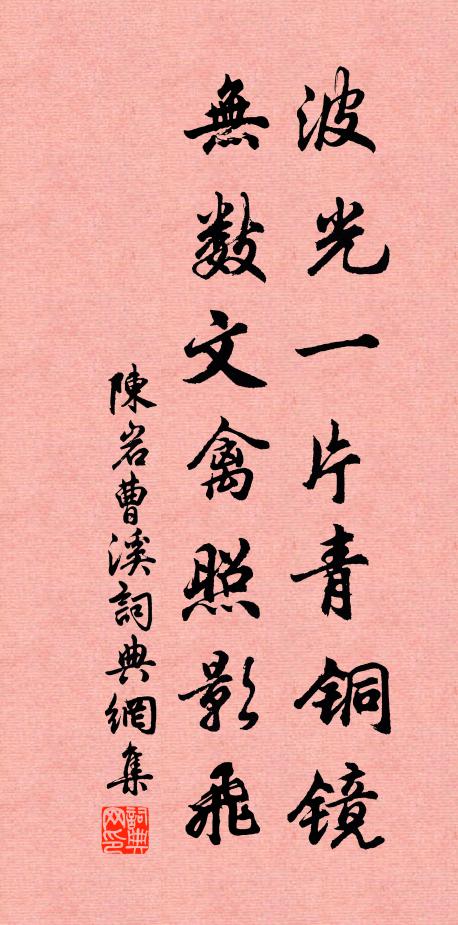 波光一片青铜镜
無數文禽照影飛
陳岩曹溪詞典網集
詞典网印